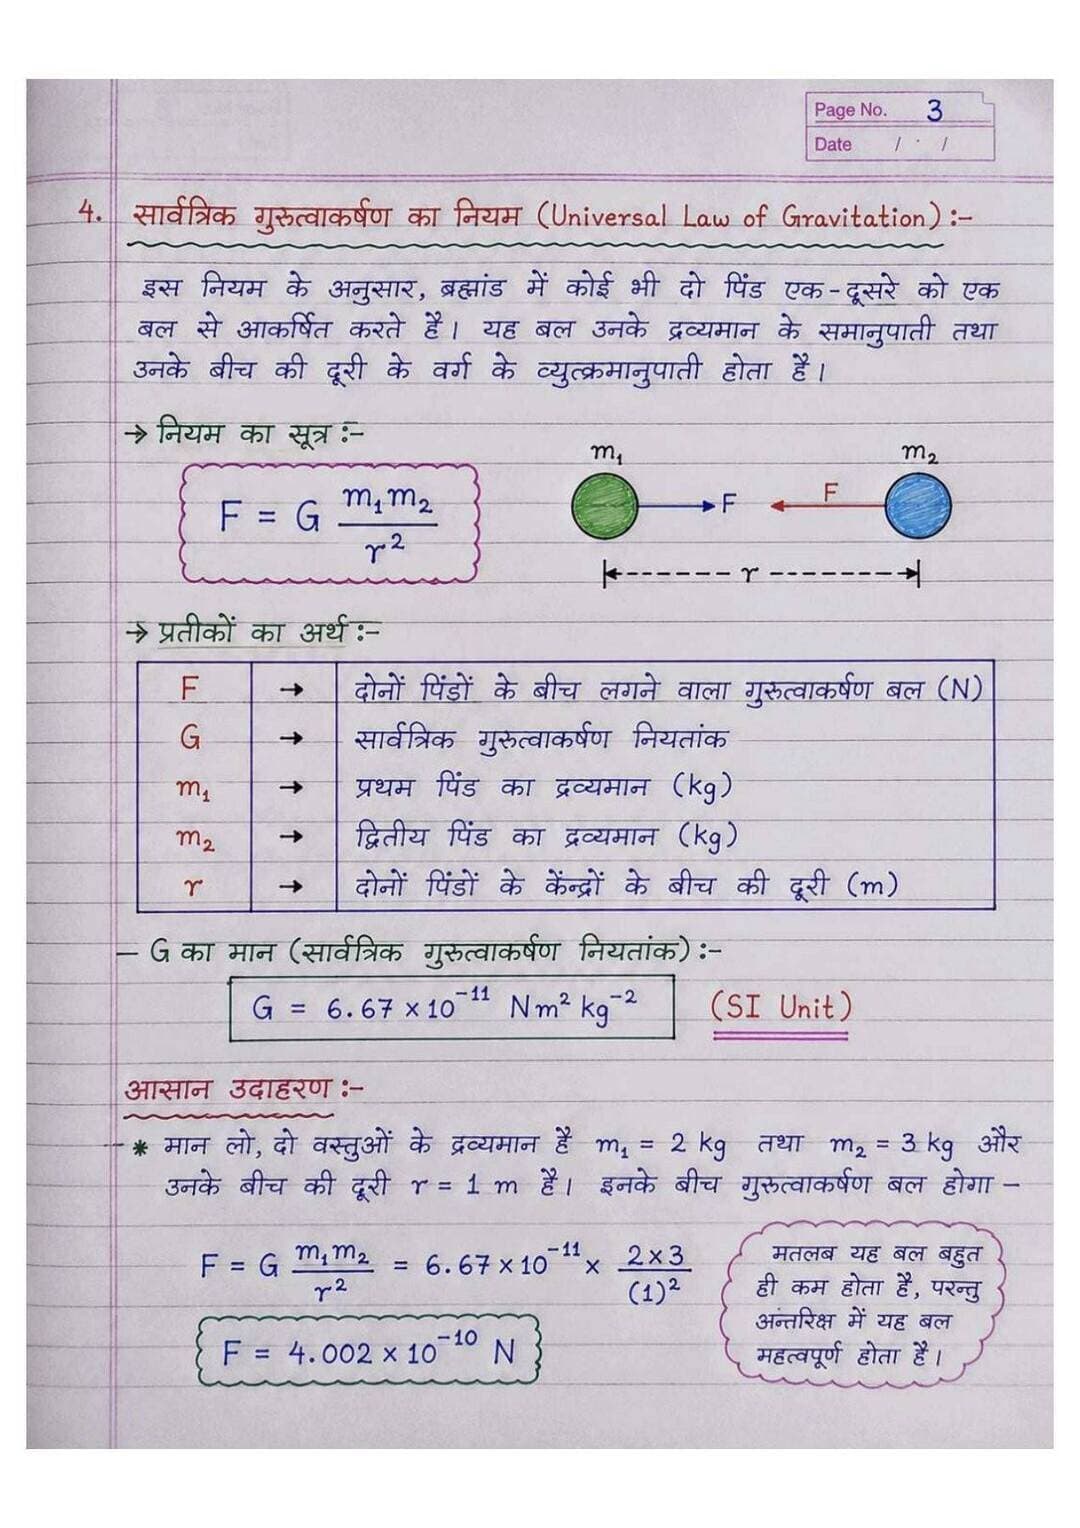 Page No. 3
Date / /
4. सार्वत्रिक गुरुत्वाकर्षण का नियम (Universal Law of Gravitation) :-
इस नियम के अनुसार, ब्रह्मांड में कोई भी दो पिंड एक-दूसरे को एक
बल से आकर्षित करते है। यह बल उनके द्रव्यमान के समानुपाती तथा
उनके बीच की दूरी के वर्ग के व्युत्क्रमानुपाती होता है।
→ नियम का सूत्र :-
F = G m₁m₂ / r²
m₁ m₂
F F
r
→ प्रतीकों का अर्थ :-
F → दोनों पिंडों के बीच लगने वाला गुरुत्वाकर्षण बल (N)
G → सार्वत्रिक गुरुत्वाकर्षण नियतांक
m₁ → प्रथम पिंड का द्रव्यमान (kg)
m₂ → द्वितीय पिंड का द्रव्यमान (kg)
r → दोनों पिंडों के केंन्द्रों के बीच की दूरी (m)
– G का मान (सार्वत्रिक गुरुत्वाकर्षण नियतांक) :-
G = 6.67 × 10⁻¹¹ Nm² kg⁻² (SI Unit)
आसान उदाहरण :-
* मान लो, दो वस्तुओं के द्रव्यमान है m₁ = 2 kg तथा m₂ = 3 kg और
उनके बीच की दूरी r = 1 m है। इनके बीच गुरुत्वाकर्षण बल होगा –
F = G m₁m₂ / r² = 6.67 × 10⁻¹¹ × 2×3 / (1)²
F = 4.002 × 10⁻¹⁰ N
मतलब यह बल बहुत
ही कम होता है, परन्तु
अंन्तरिक्ष में यह बल
महत्वपूर्ण होता है।